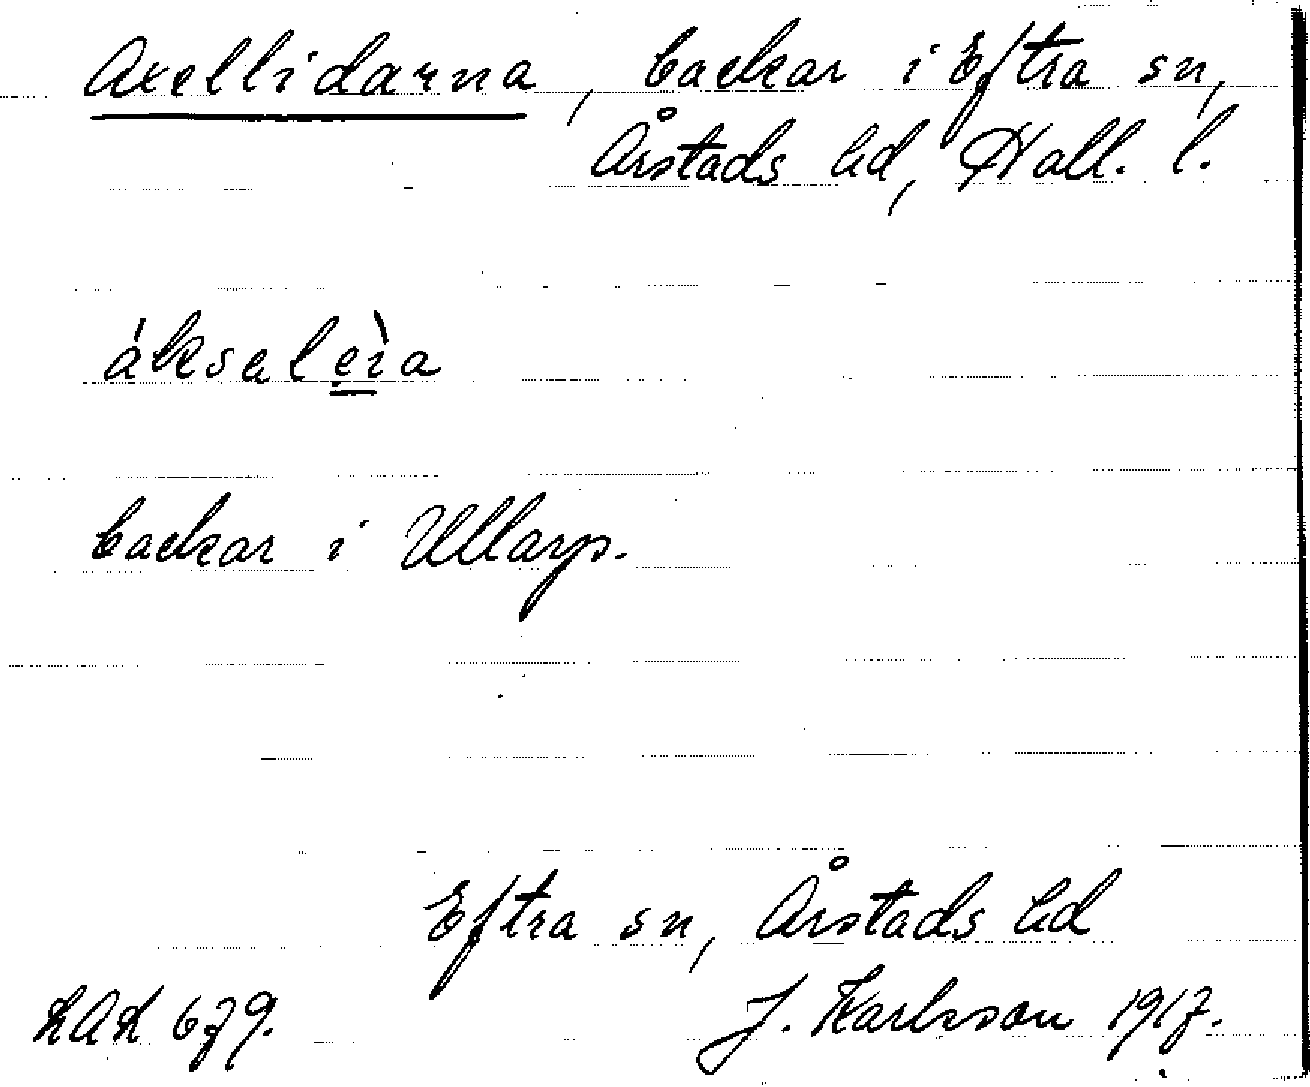 Axellidarna, backar i Eftra sn,
Årstads hd, Hall. l.
áksaleìa
backar i Ullarp.
Eftra sn, Årstads hd
LAL 679. J. Karlsson 1917.